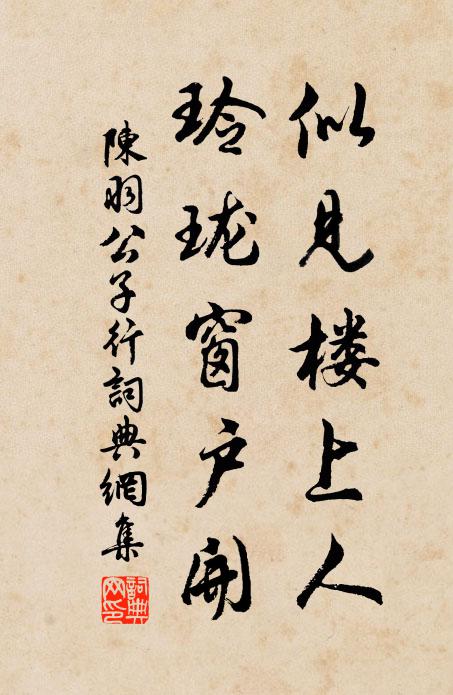 似见楼上人
玲珑窗户開
陳羽公子行詞典網集
詞典網印